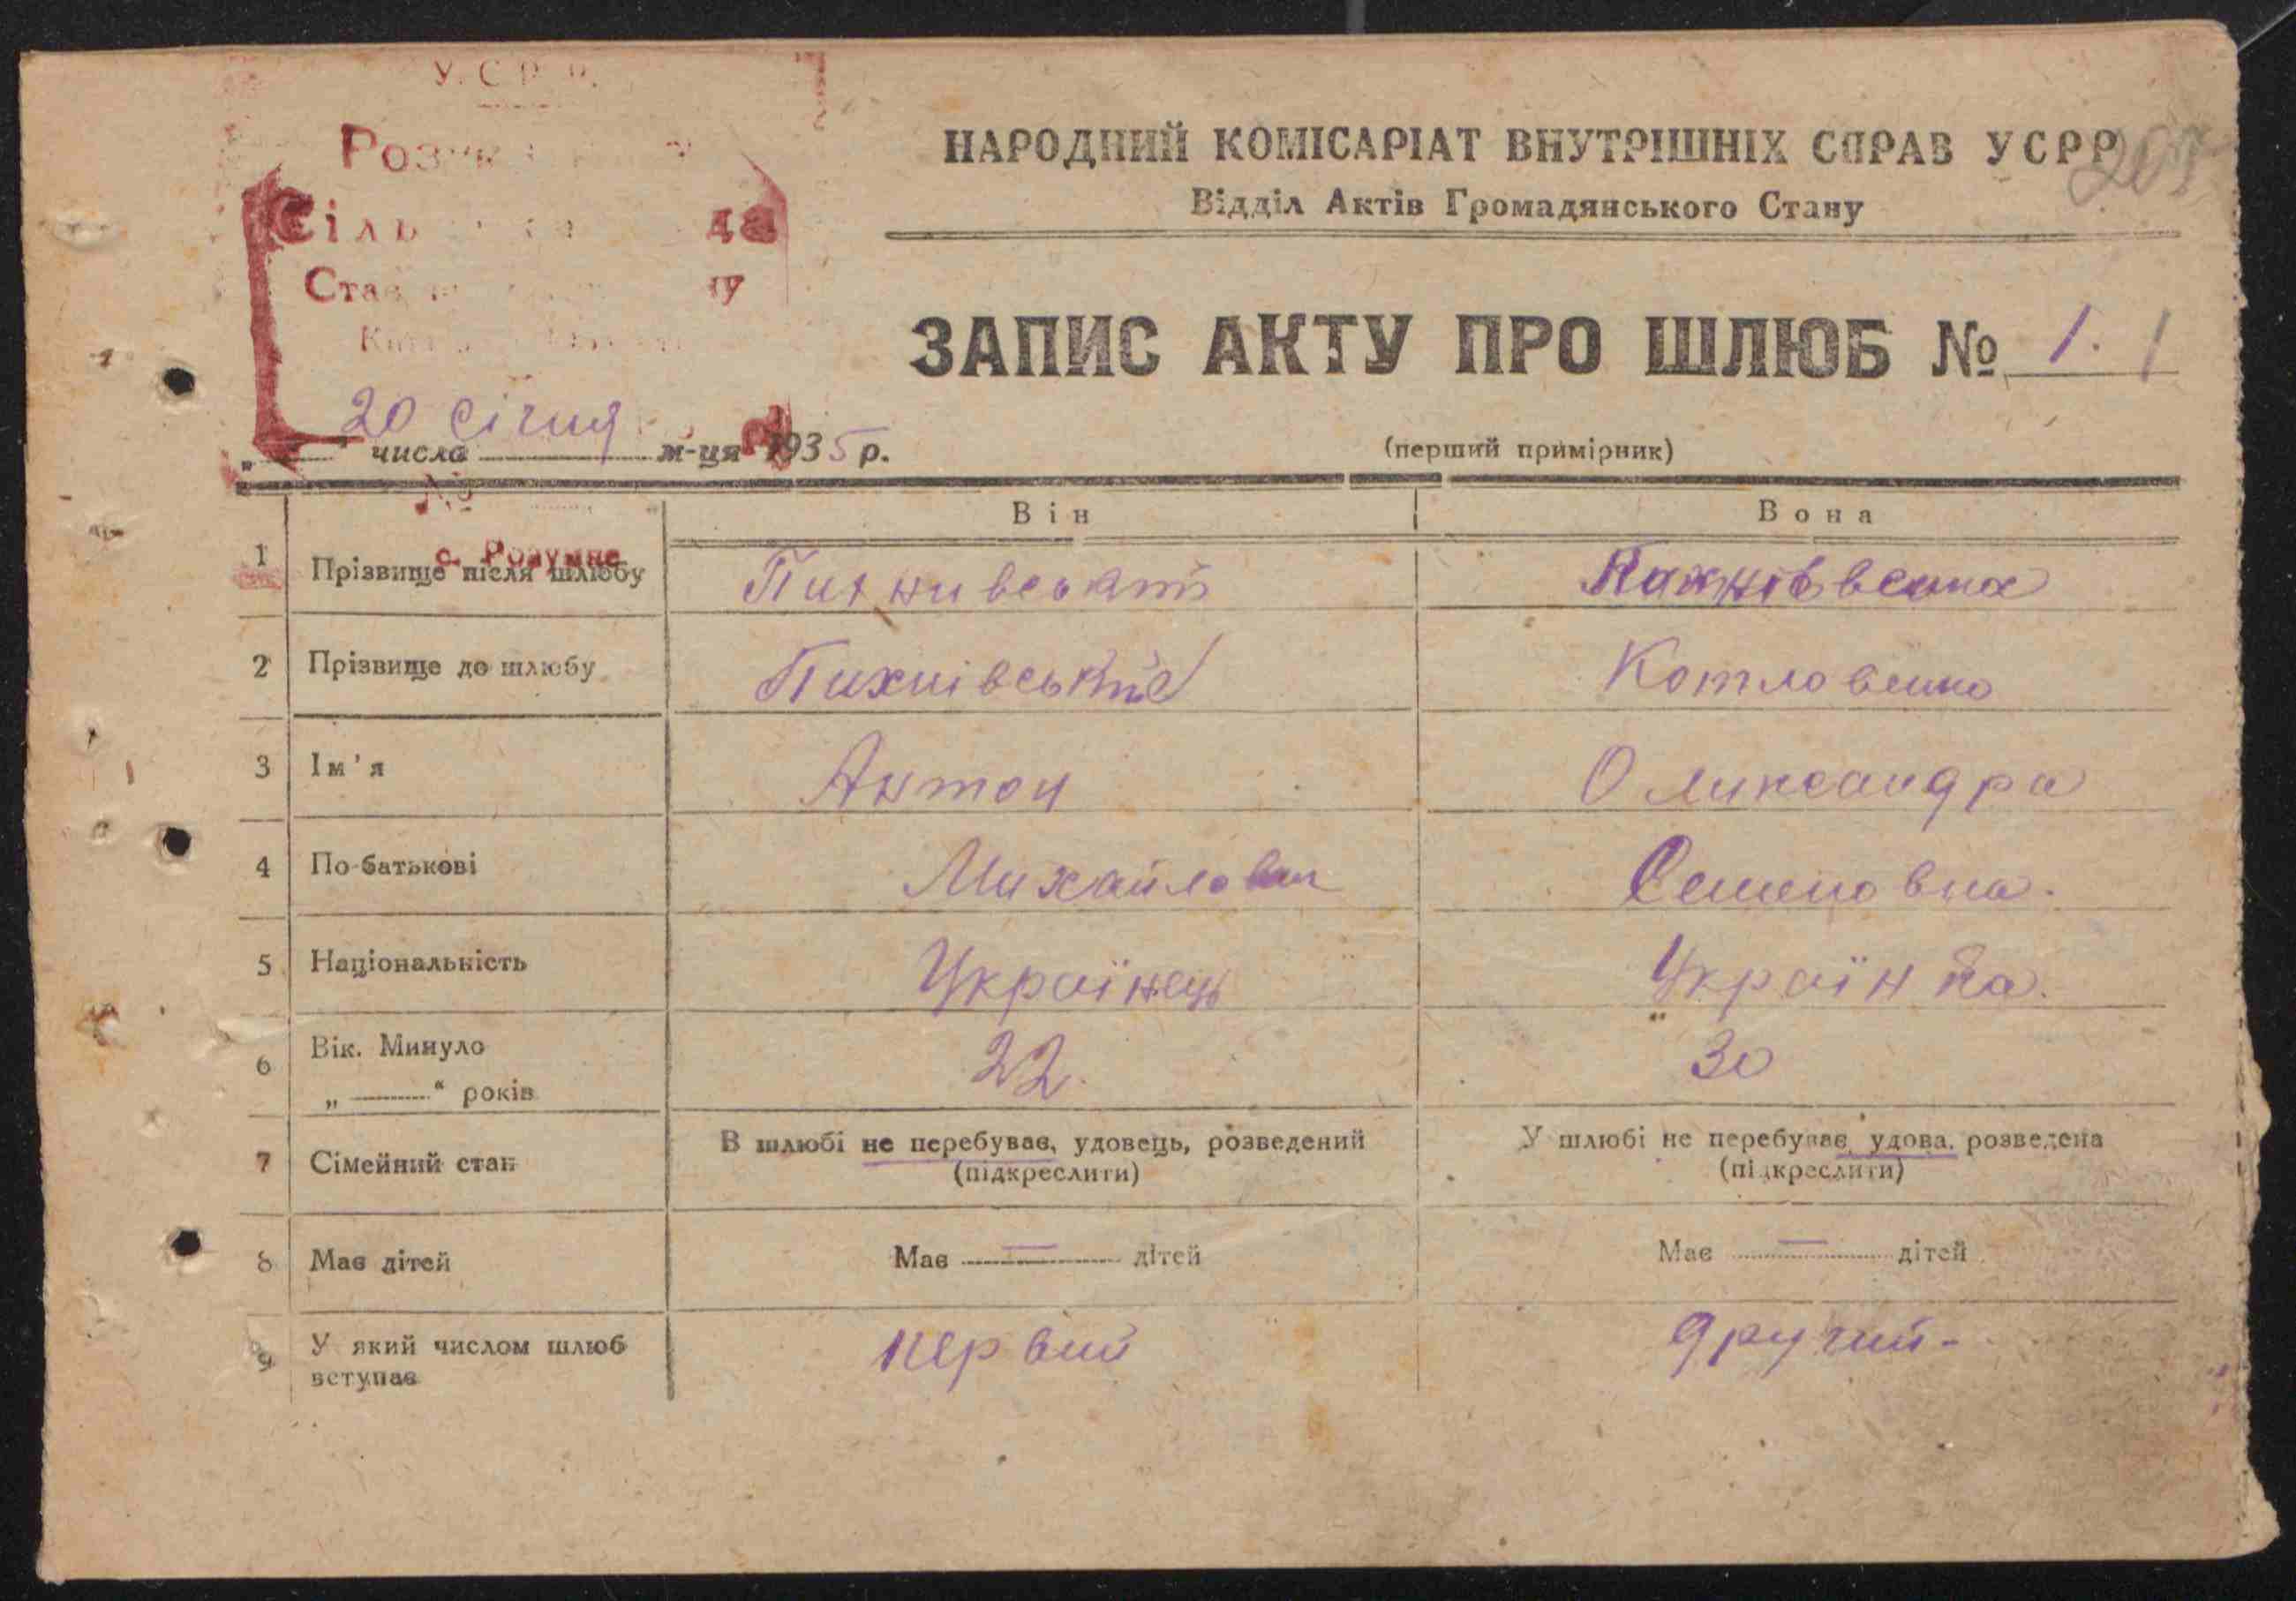 У. С. Р. Р.
НАРОДНИЙ КОМІСАРІАТ ВНУТРІШНІХ СПРАВ УСРР
Відділ Актів Громадянського Стану
ЗАПИС АКТУ ПРО ШЛЮБ № 1. 1
20 січня
„ " числа м-ця 1935 р.
(перший примірник)
Він Вона
с. Розумне
1 Прізвище після шлюбу
2 Прізвище до шлюбу Пихнівський Котловенко
3 Ім'я Антон Олинсандра
4 По-батькові Михайлович Семеновна.
5 Національність Українець Українка.
6 Вік. Минуло 22. 30
„ " років
7 Сімейний стан В шлюбі не перебував, удовець, розведений У шлюбі не перебувае, удова, розведена
(підкреслити) (підкреслити)
8 Має дітей Має — дітей Має — дітей
9 У який числом шлюб первий другий -
вступає